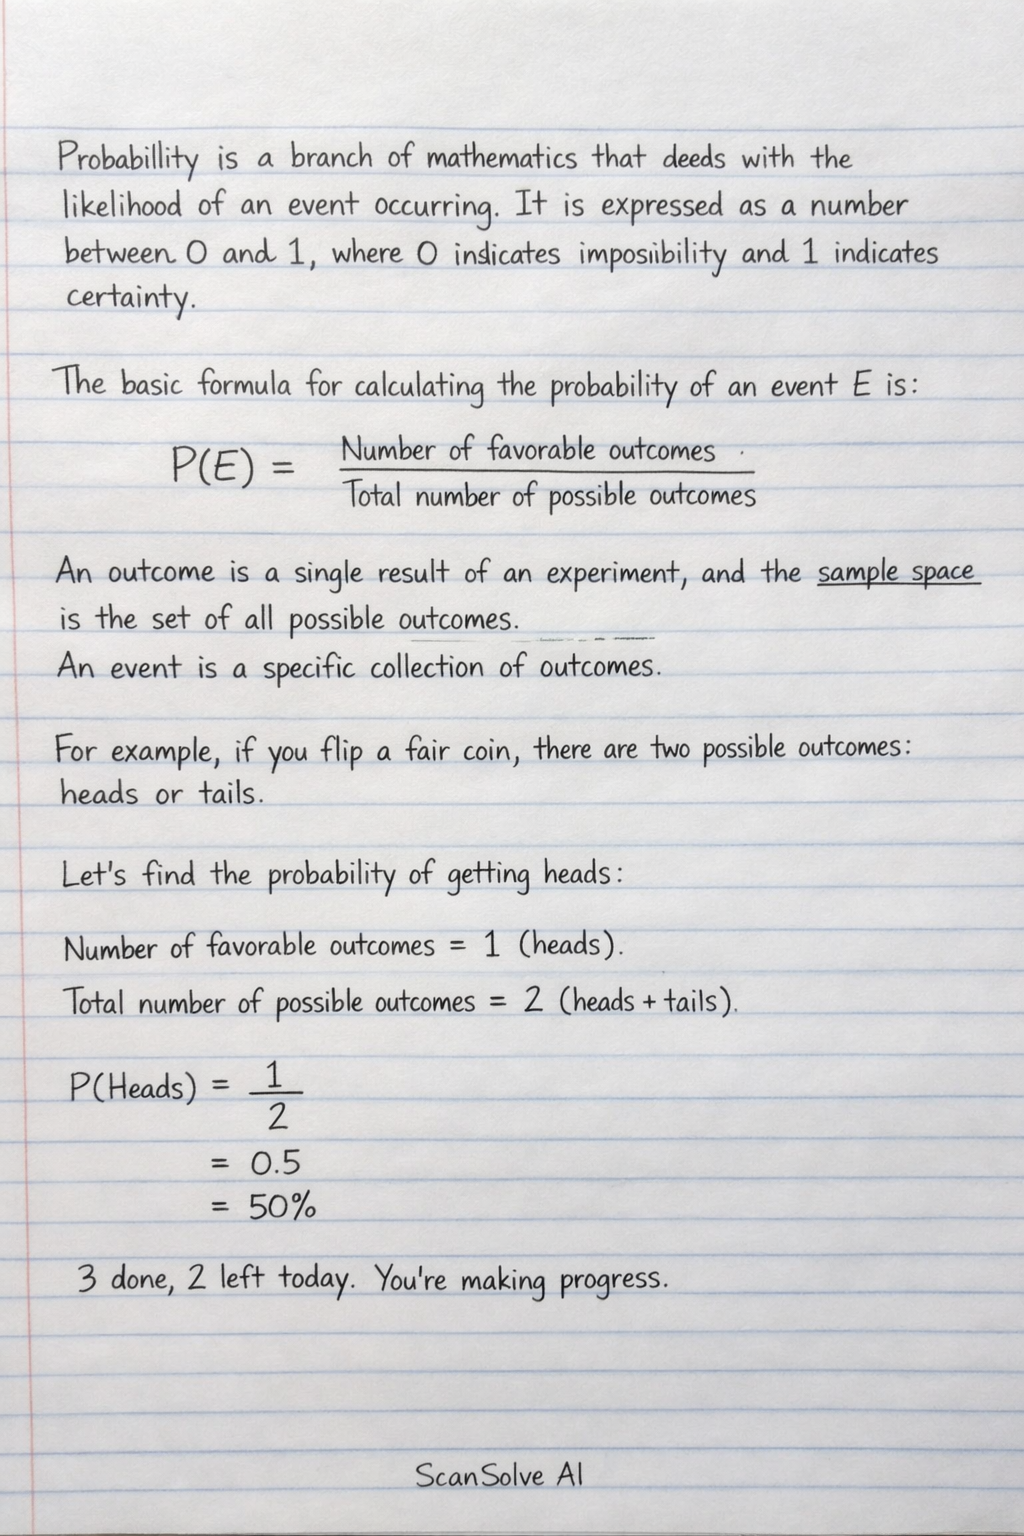 Probabillity is a branch of mathematics that deeds with the
likelihood of an event occurring. It is expressed as a number
between 0 and 1, where 0 indicates imposiibility and 1 indicates
certainty.
The basic formula for calculating the probability of an event E is:
P(E) = Number of favorable outcomes
Total number of possible outcomes
An outcome is a single result of an experiment, and the sample space
is the set of all possible outcomes.
An event is a specific collection of outcomes.
For example, if you flip a fair coin, there are two possible outcomes:
heads or tails.
Let's find the probability of getting heads:
Number of favorable outcomes = 1 (heads).
Total number of possible outcomes = 2 (heads + tails).
P(Heads) = 1
2
= 0.5
= 50%
3 done, 2 left today. You're making progress.
ScanSolve AI